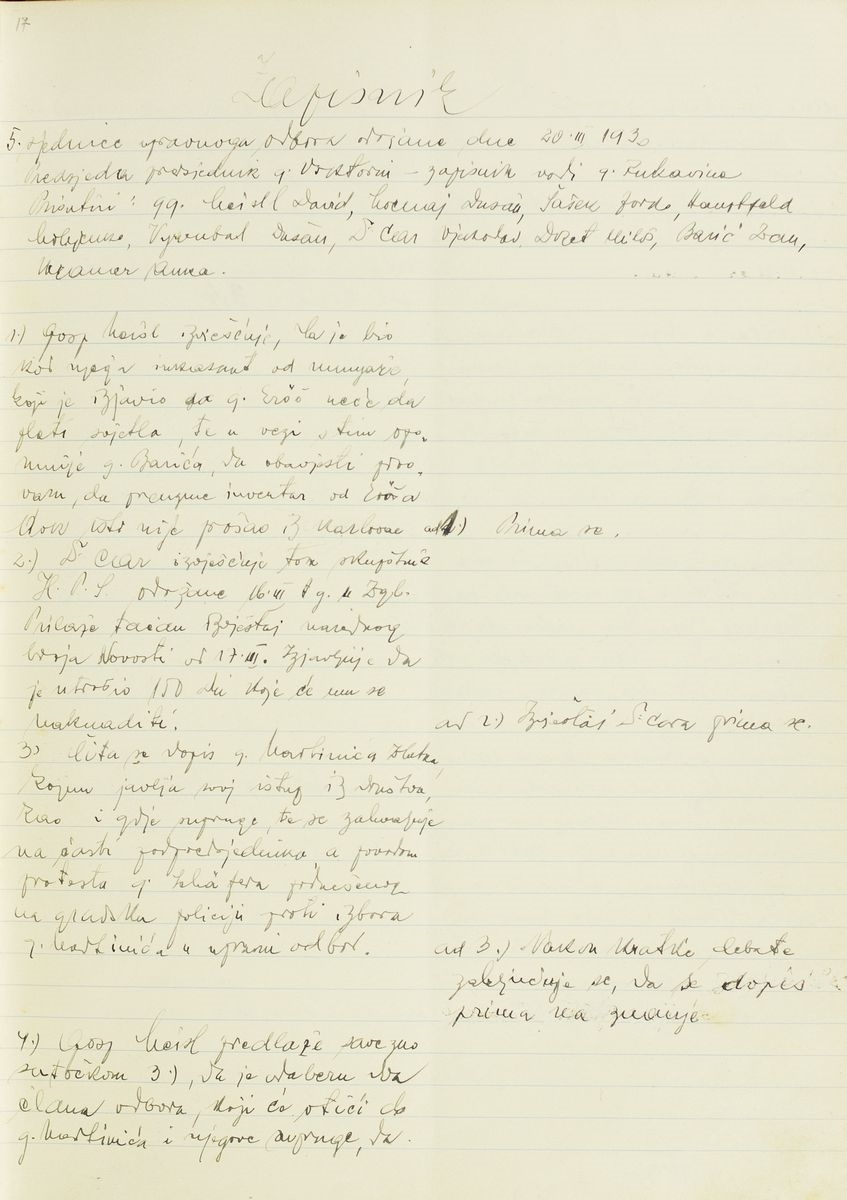 17
Zapisnik
5. sjednice upravnoga odbora održane dne 20. III 1930
Predsjeda predsjednik g. – zapisnik vodi g. Rukavina
Prisutni: gg. Meisl David, Dušan, Šušek Đorđe,
Dušan, Dr Car Vjekoslav, Dozet Miloš, Barić Dan,
Kramer Anka.
1.) Gosp Meisl izvješćuje, da je bio
kod njega inkasant od munjare,
koji je izjavio da g. Eröš neće da
plati svjetla, te u vezi s tim opo-
minje g. Barića, da obavjesti
da preuzme inventar od Eröša
dok isti nije prošao iz Karlovca
ad 1.) Prima se.
2.) Dr Car izvješćuje tok skupštine
H. P. S. održane 16. III t g. u Zgb.
Prilaže tačan izvještaj
broja Novosti od 17. III. Izjavljuje da
je utrošio 150 din koje će mu se
naknaditi.
ad 2.) Izvještaj Dr Cara prima se.
3.) Čita se dopis g. Martinića Zlatka,
kojim javlja svoj istup iz društva,
kao i gdje supruge, te se zahvaljuje
na časti podpredsjednika a povodom
protesta g. podnešenog
na gradsku policiju proti izbora
g. Martinića u upravni odbor.
ad 3.) Nakon kratke debate
zaključuje se, da se dopis
prima na znanje
4.) Gosp Meisl predlaže savezno
sa točkom 3.), da je odaberu dva
člana odbora, koji će otići do
g. Martinića i njegove supruge, da